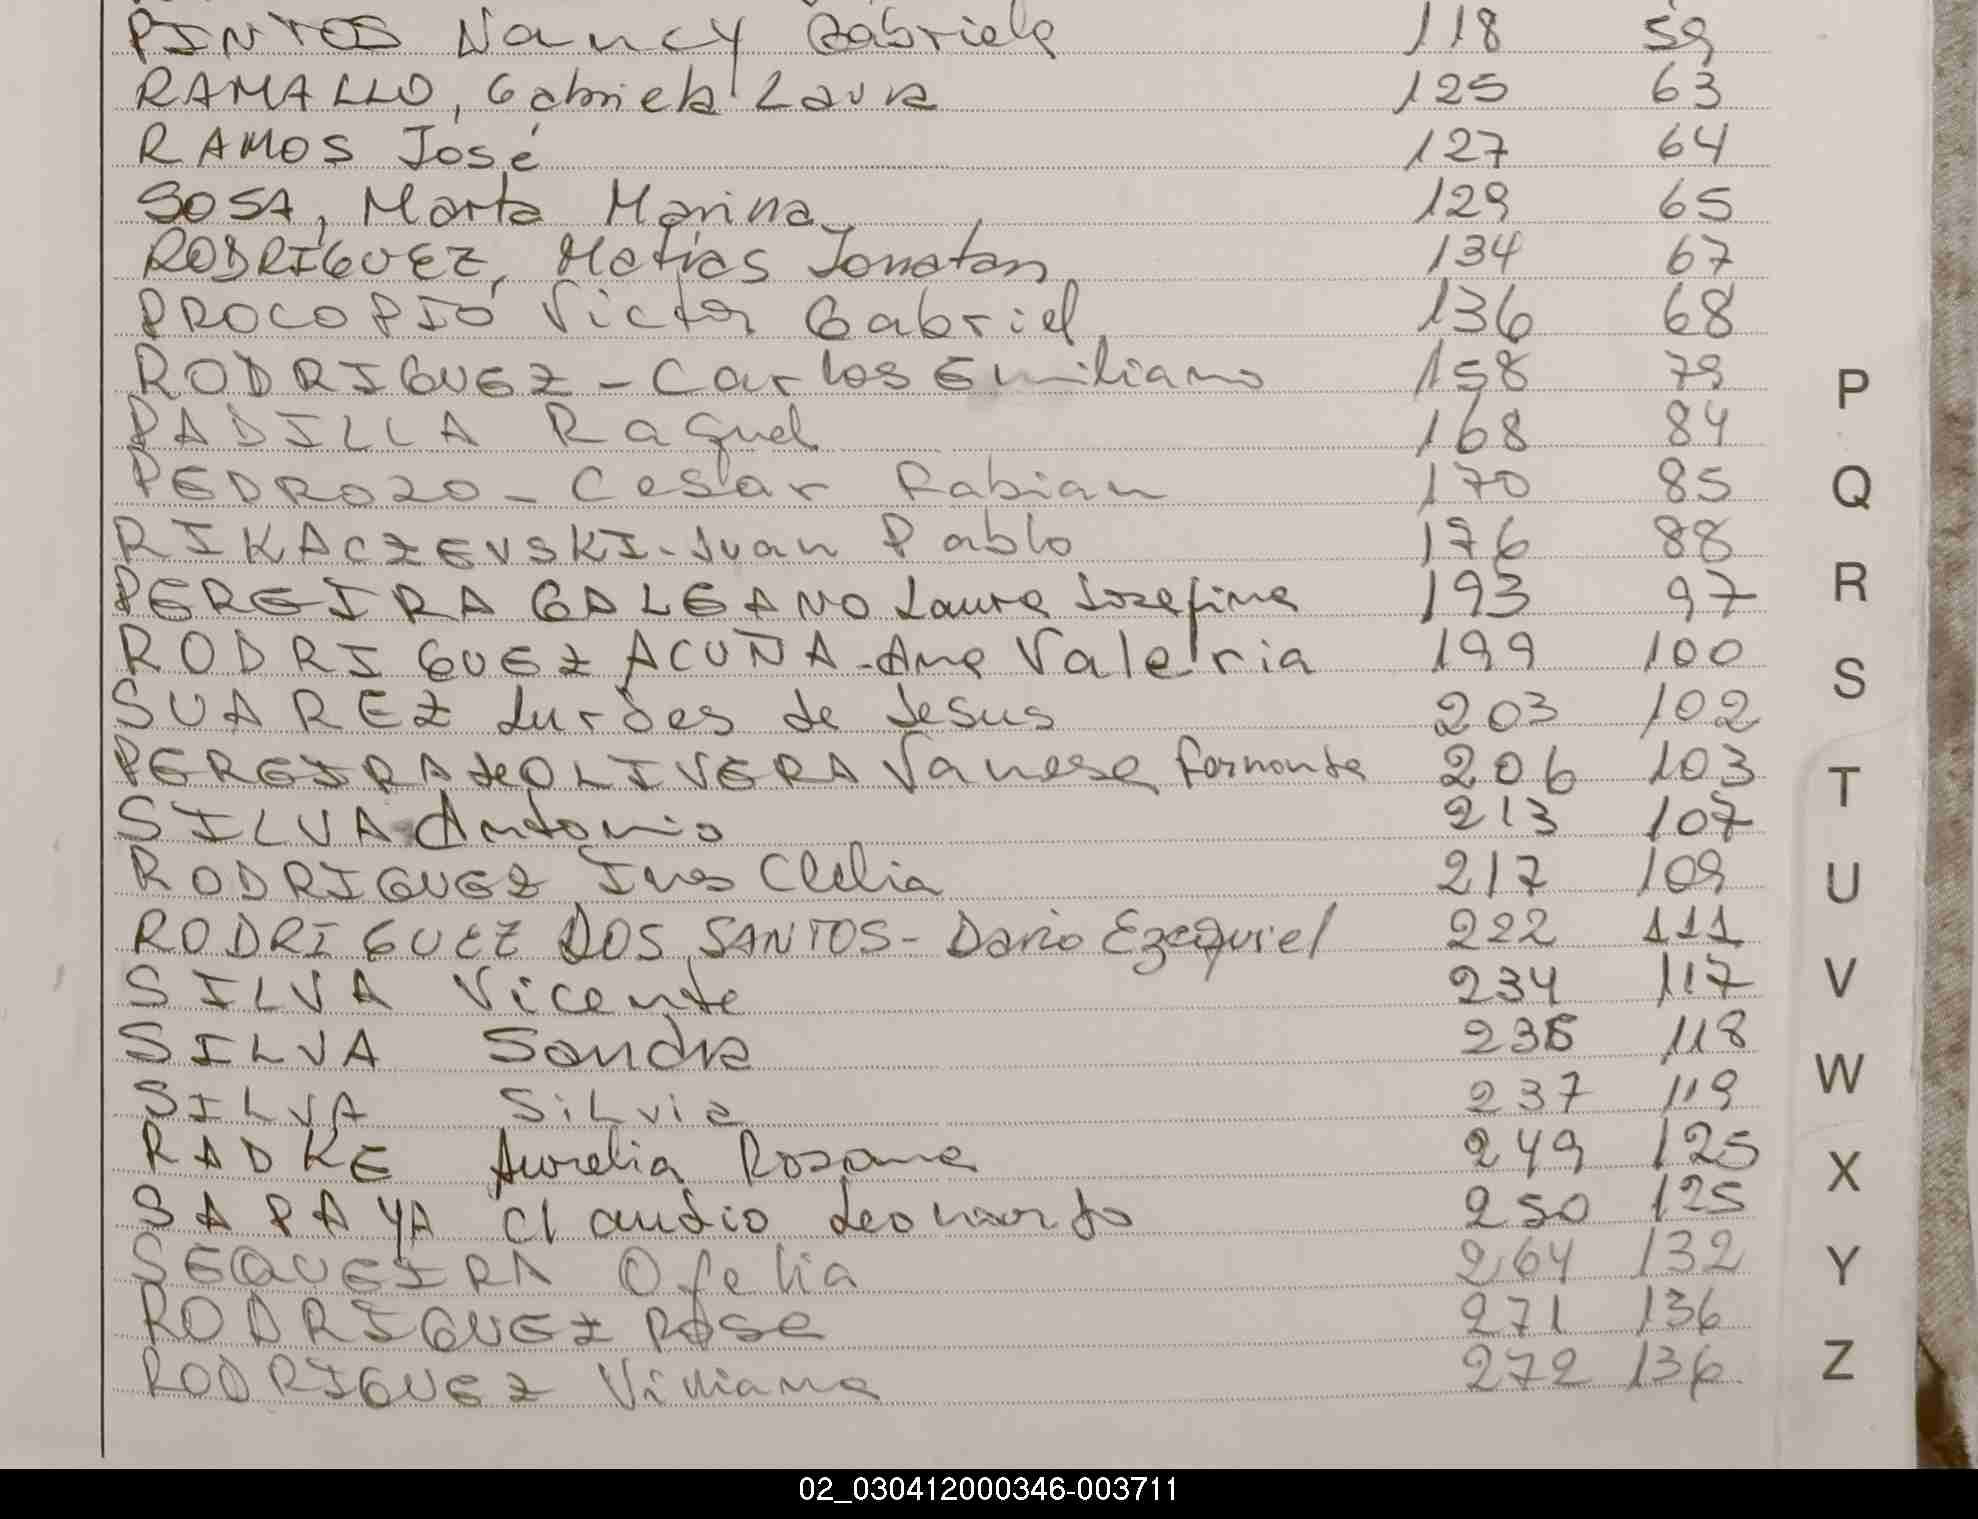 PINTOS Nancy Gabriela 118 59
RAMALLO, Gabriela Laura 125 63
RAMOS José 127 64
SOSA, Marta Marina 129 65
RODRIGUEZ, Matias Jonatan 134 67
PROCOPIO Victor Gabriel 136 68
RODRIGUEZ - Carlos Emiliano 158 79
PADILLA Raquel 168 84
PEDROZO - Cesar Fabian 170 85
RIKACZEVSKI - Juan Pablo 176 88
PEREIRA GALEANO Laura Josefina 193 97
RODRIGUEZ ACUÑA - Ana Valeria 199 100
SUAREZ Lurdes de Jesus 203 102
PEREIRA de OLIVERA Vanesa Fernanda 206 103
SILVA Antonio 213 107
RODRIGUEZ Ines Clelia 217 109
RODRIGUEZ DOS SANTOS - Dario Ezequiel 222 111
SILVA Vicente 234 117
SILVA Sandra 236 118
SILVA Silvia 237 119
RADKE Aurelia Rosana 249 125
SAPAYA Claudio Leonardo 250 125
SEQUEIRA Ofelia 264 132
RODRIGUEZ Rosa 271 136
RODRIGUEZ Viviana 272 136
P
Q
R
S
T
U
V
W
X
Y
Z
02_030412000346-003711